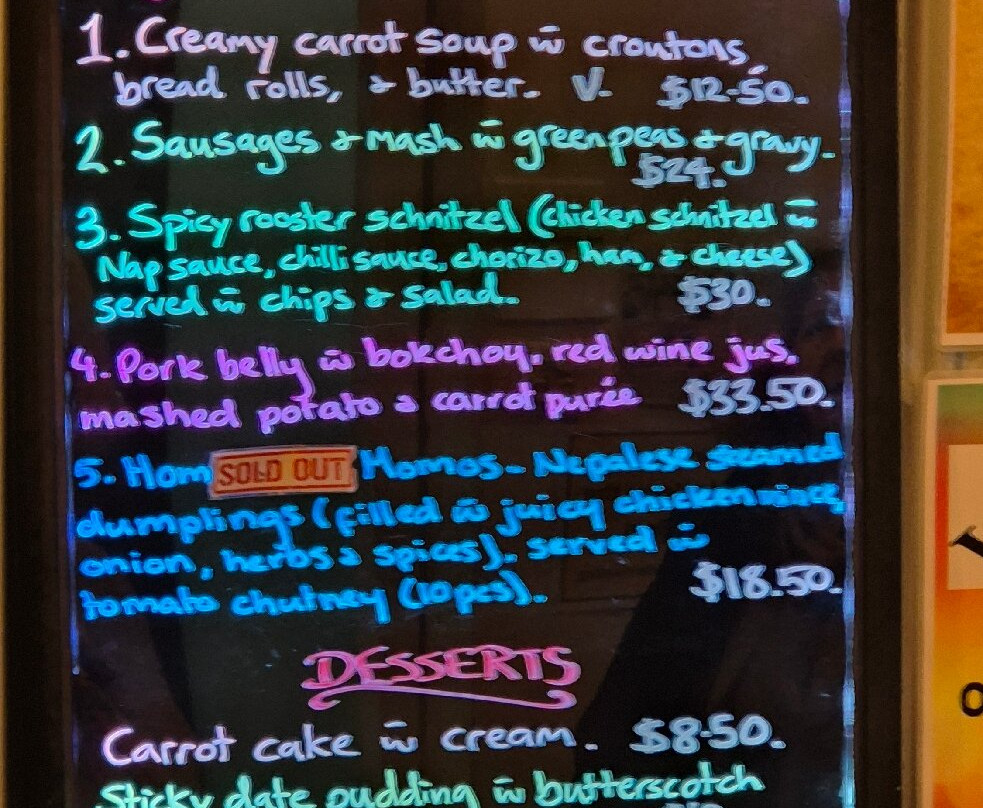 1. Creamy carrot soup w̄ croutons,
bread rolls, & butter. V. $12.50.
2. Sausages & mash w̄ green peas & gravy.
$24.
3. Spicy rooster schnitzel (chicken schnitzel w̄
Nap sauce, chilli sauce, chorizo, ham, & cheese)
served w̄ chips & salad. $30.
4. Pork belly w̄ bokchoy, red wine jus,
mashed potato & carrot purée $33.50.
5. Hom SOLD OUT Momos - Nepalese steamed
dumplings (filled w̄ juicy chicken mince,
onion, herbs & spices). served w̄
tomato chutney (10pcs). $18.50.
DESSERTS
Carrot cake w̄ cream. $8.50.
Sticky date pudding w̄ butterscotch